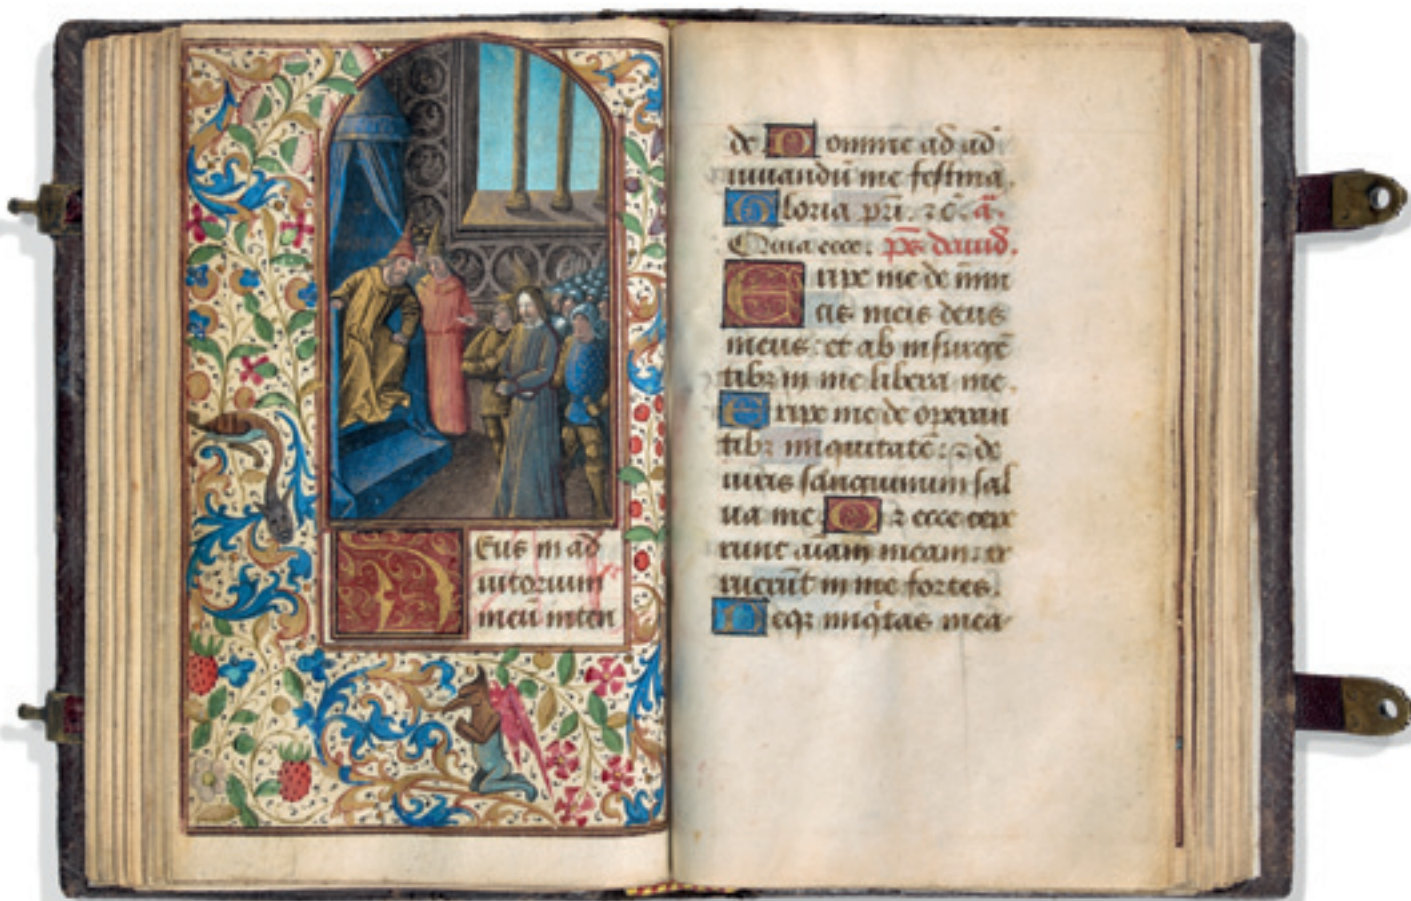 Deus in ad
iutorium
meū inten
de Domine ad ad
iuuandū me festina.
Gloria pri. ⁊c̄. a͞.
Quia ecce. ps dauid.
Eripe me de inim
cis meis deus
meus: et ab insurgē
tibꝫ in me libera me.
Eripe me de operan
tibꝫ iniquitatē: ⁊ de
uiris sanguinum sal
ua me Qꝛ ecce cepe
runt aīam meam: ir
ruerūt in me fortes.
Neqꝫ iniq̄tas mea